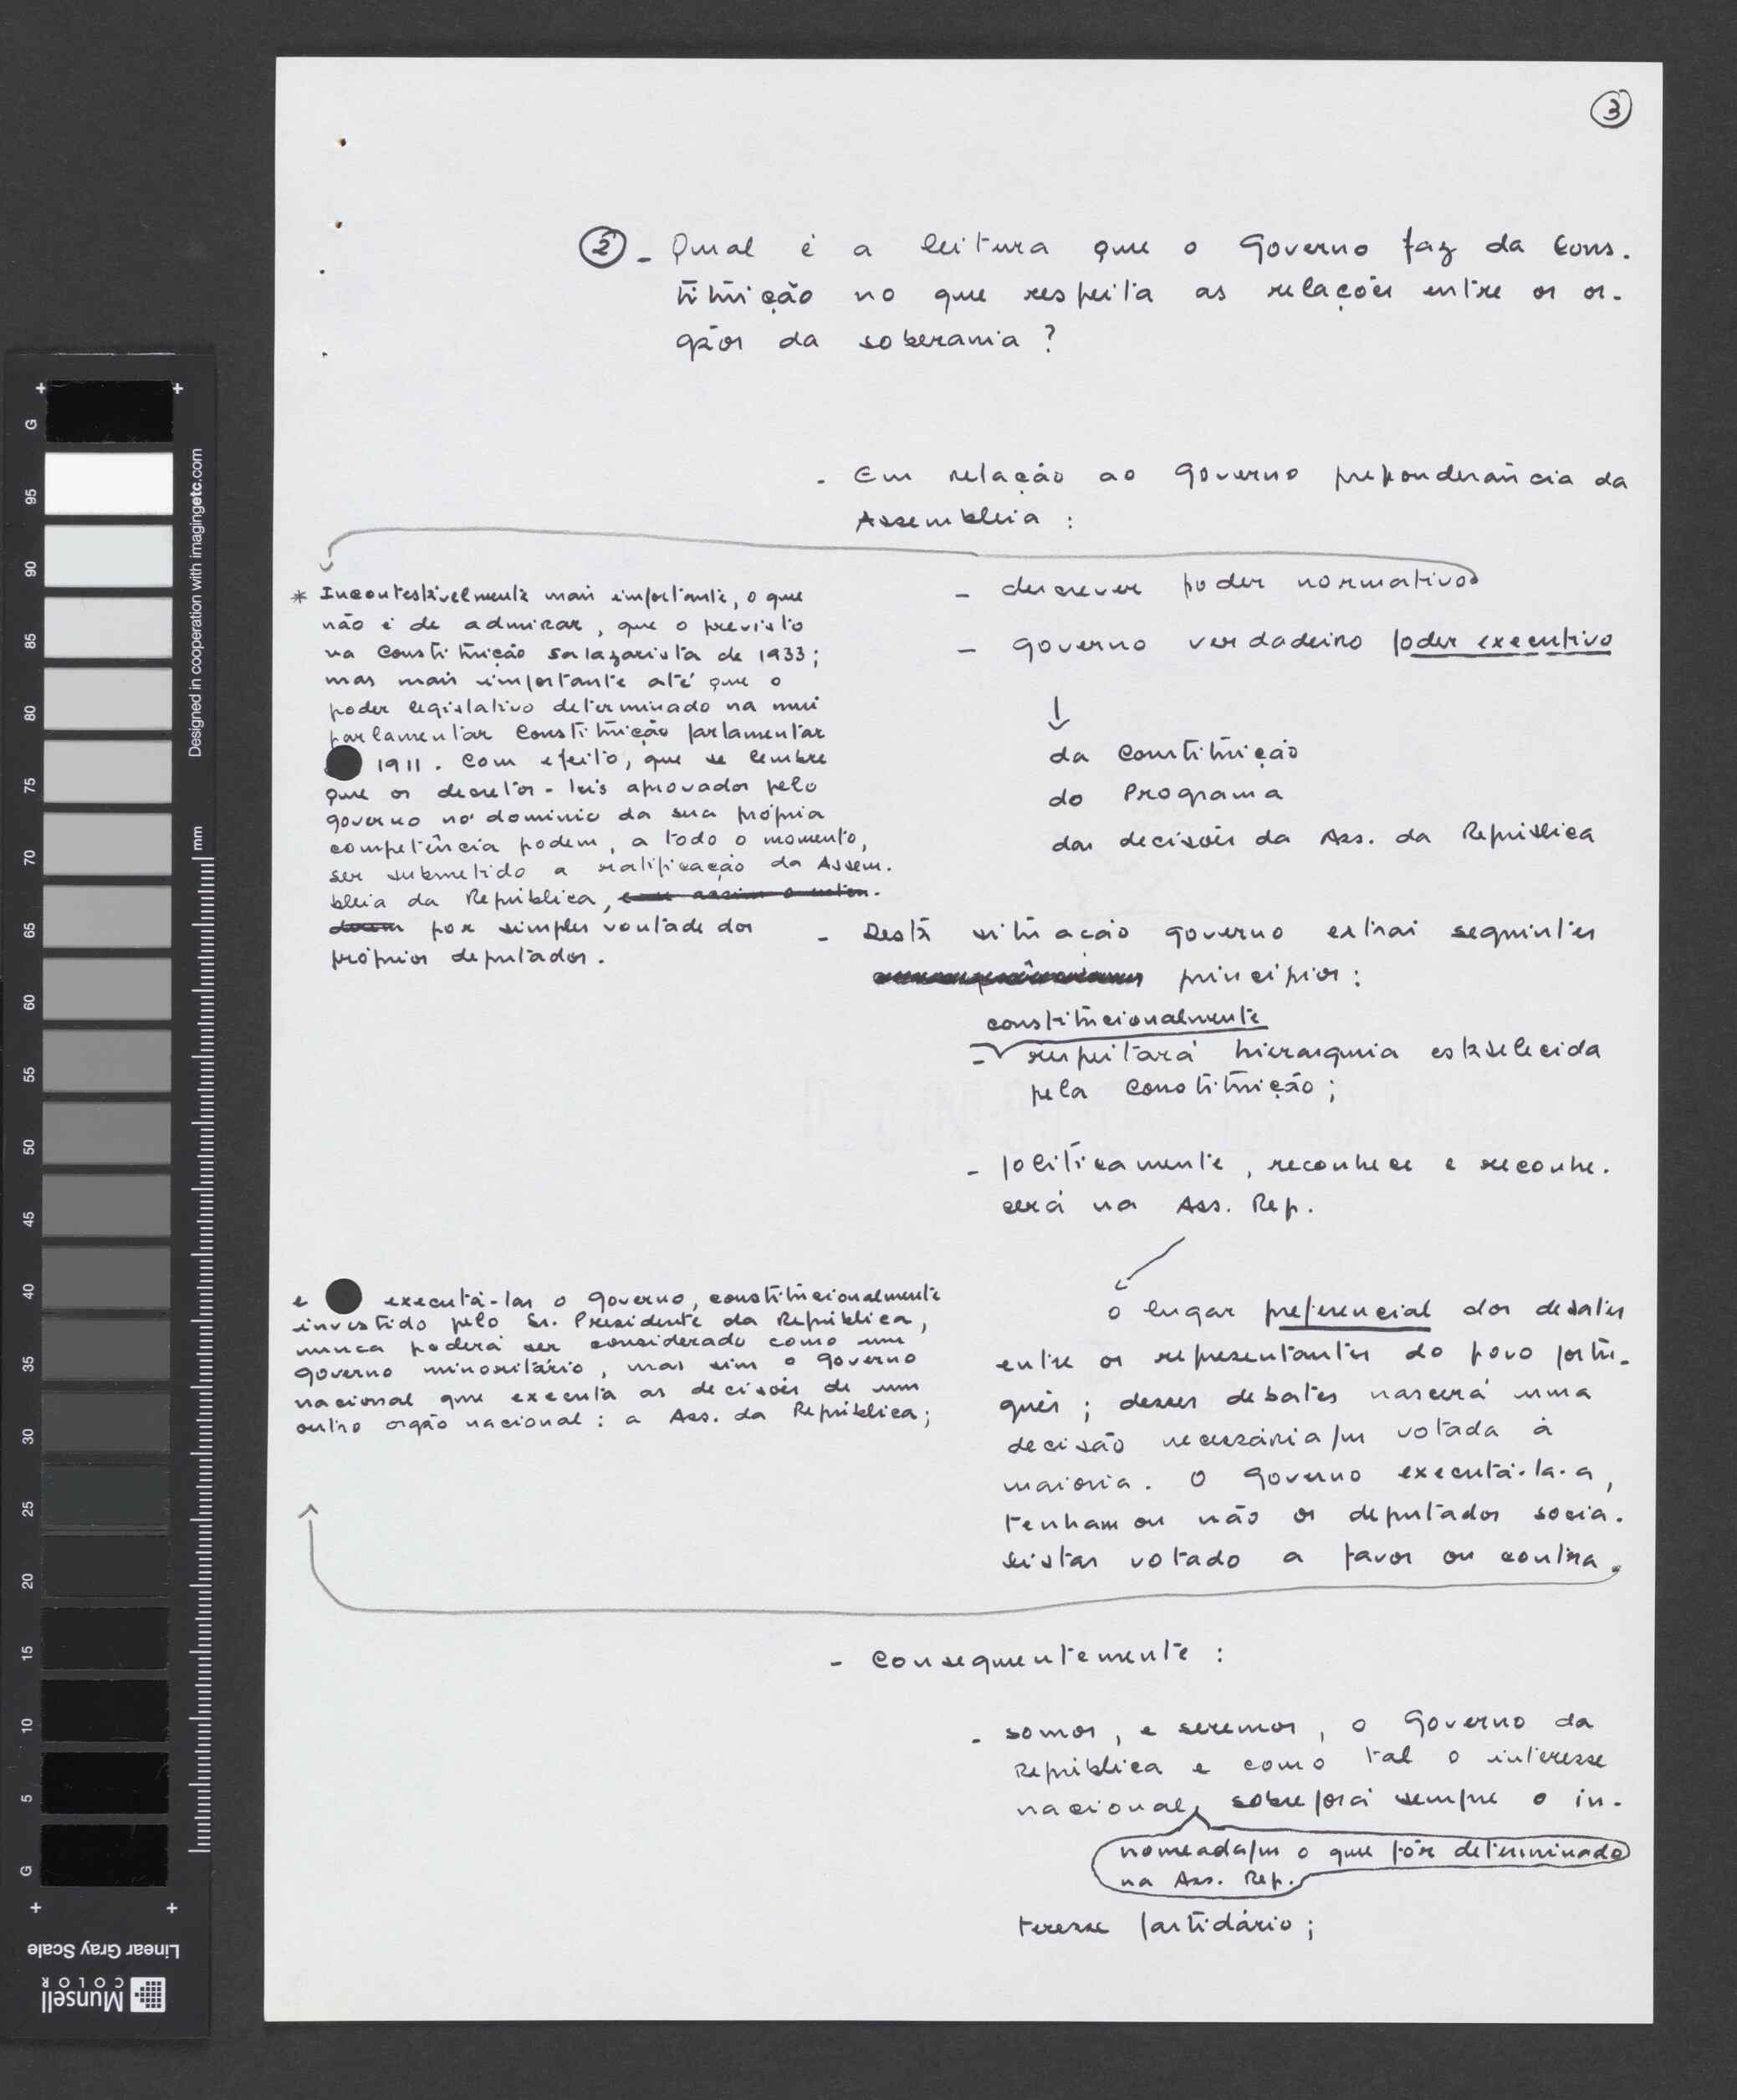 3
2 - Qual é a leitura que o Governo faz da Cons-
tituição no que respeita as relações entre os or-
gãos da soberania?
- Em relação ao Governo preponderância da
Assembleia:
- descrever poder normativo
- governo verdadeiro poder executivo
↓
da Constituição
do Programa
das decisões da Ass. da República
* Incontestàvelmente mais importante, o que
não é de admirar, que o previsto
na Constituição Salazarista de 1933;
mas mais importante até que o
poder legislativo determinado na mui
parlamentar Constituição parlamentar
1911. Com efeito, que se lembre
que os decretos-leis aprovados pelo
governo no domínio da sua própria
competência podem, a todo o momento,
ser submetido a ratificação da Assem-
bleia da República,
por simples vontade dos
próprios deputados.
- Desta situação governo extrai seguintes
princípios:
constitucionalmente
- respeitará hierarquia estabelecida
pela Constituição;
- politicamente, reconhece e reconhe-
cerá na Ass. Rep.
o lugar preferencial dos debates
entre os representantes do povo portu-
guês; desses debates nascerá uma
decisão necessária/m votada à
maioria. O Governo executá-la-a,
tenham ou não os deputados socia-
listas votado a favor ou contra.
e executá-las o Governo, constitucionalmente
investido pelo Sr. Presidente da República,
nunca poderá ser considerado como um
Governo minoritário, mas sim o Governo
nacional que executa as decisões de um
outro orgão nacional: a Ass. da República;
- Consequentemente:
- somos, e seremos, o Governo da
República e como tal o interesse
nacional, sobreporá sempre o in-
nomeada/m o que fôr determinado
na Ass. Rep.
teresse partidário;
G
95
90
85
80
75
70
65
60
55
50
45
40
35
30
25
20
15
10
5
G
mm
Designed in cooperation with imagingetc.com
Linear Gray Scale
Munsell
COLOR